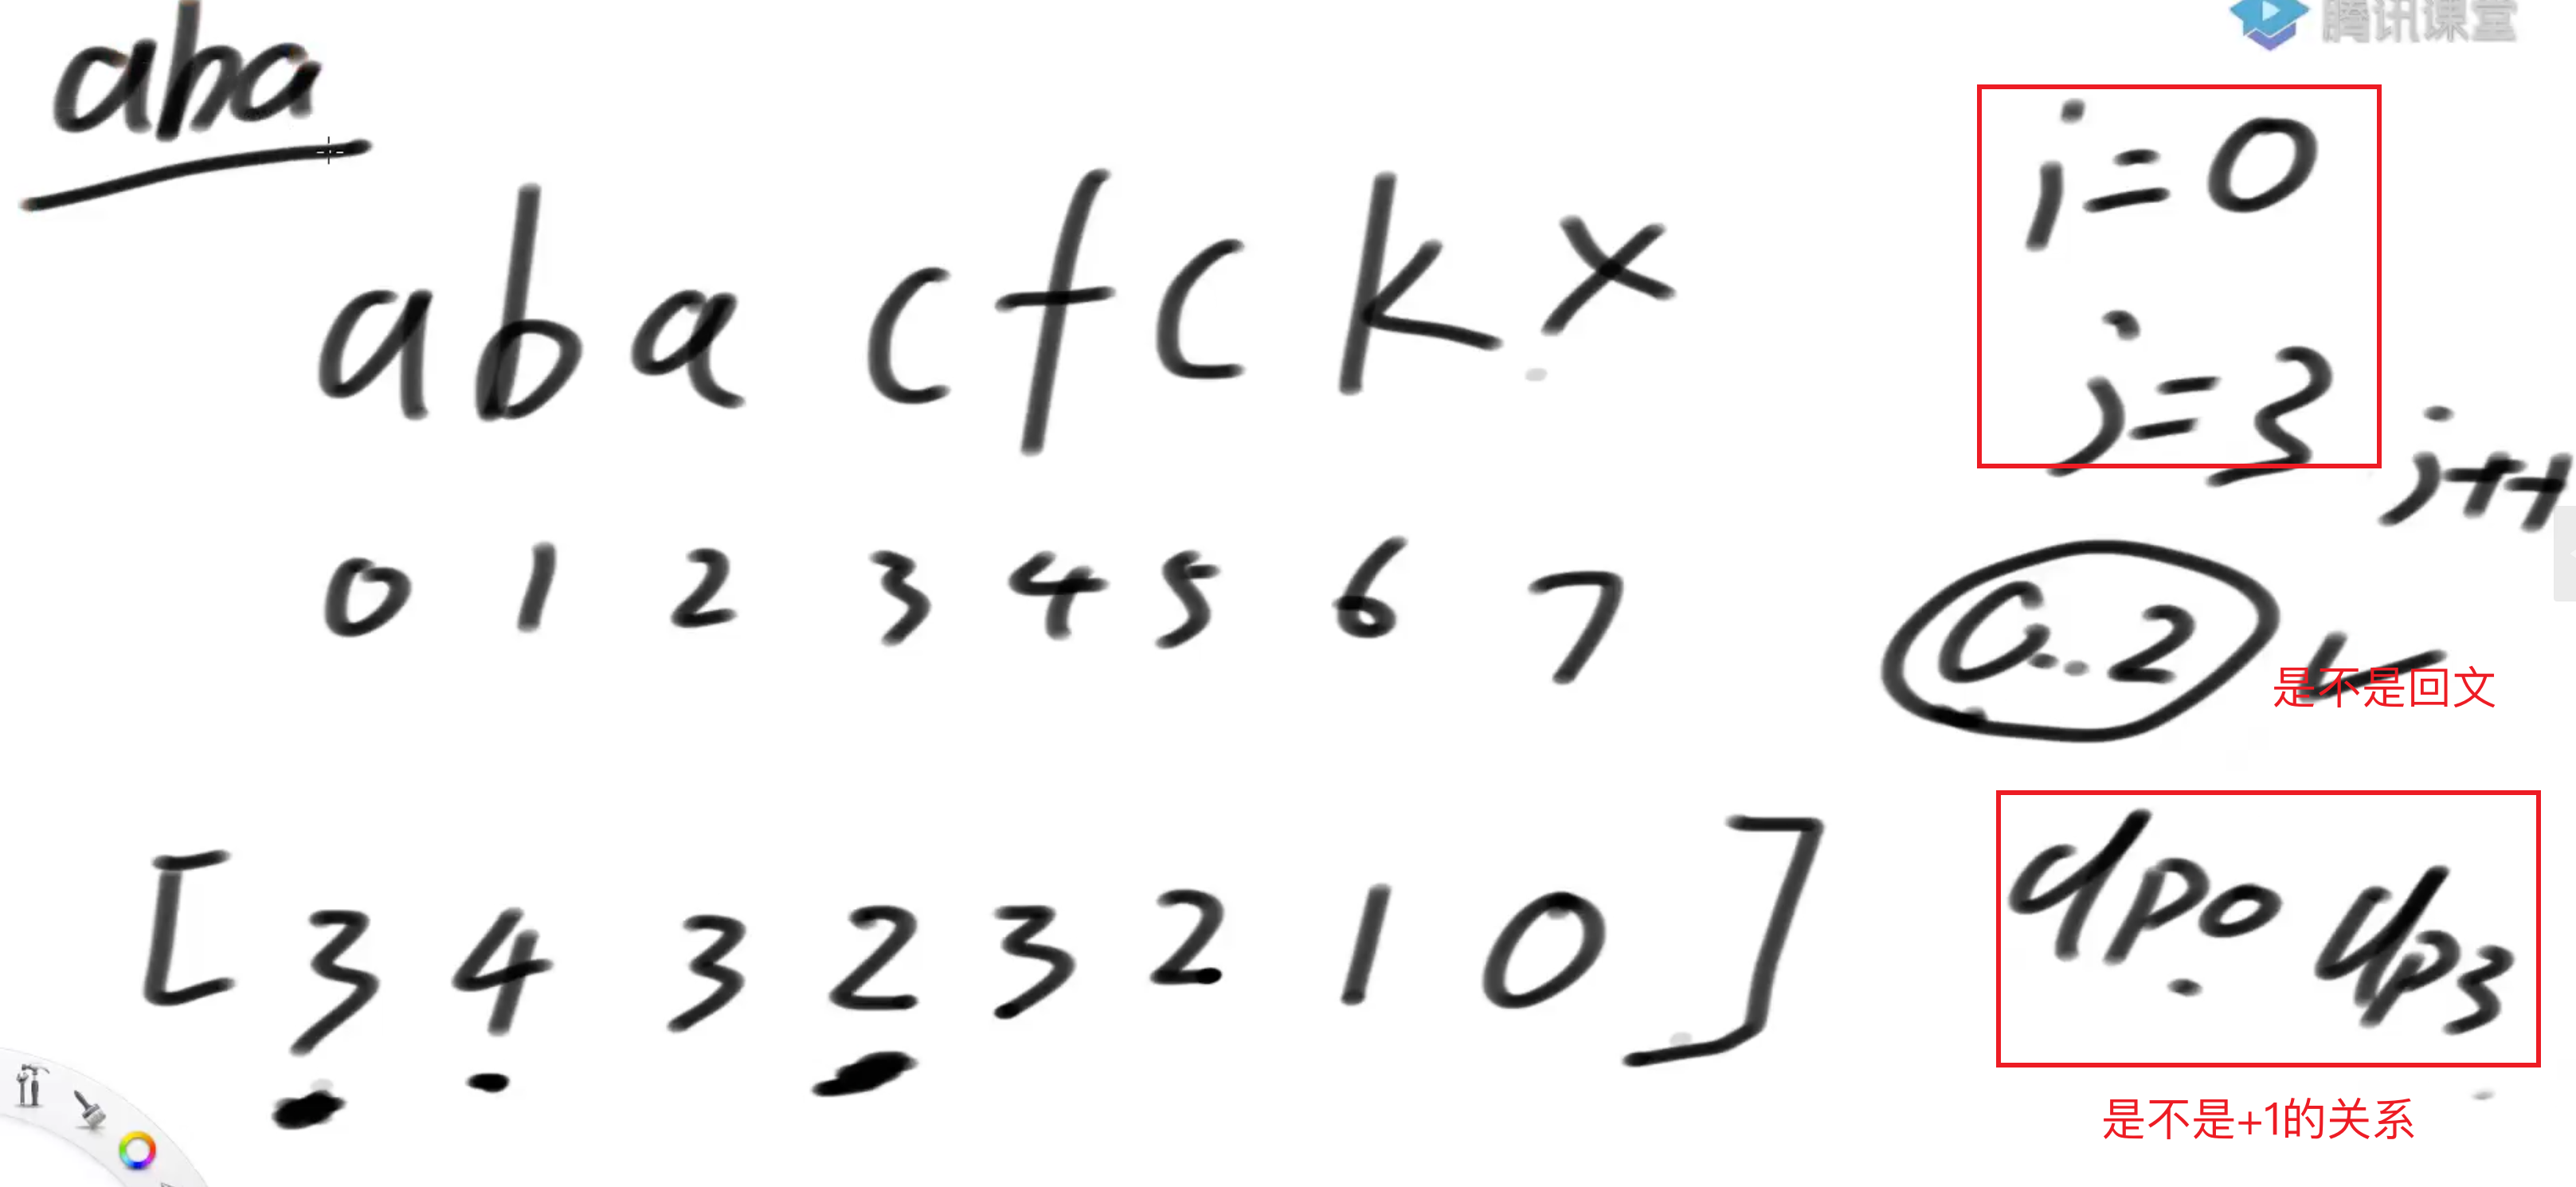 腾讯课堂
aba
a b a c f c k x
0 1 2 3 4 5 6 7
[ 3 4 3 2 3 2 1 0 ]
i=0
j=3
j++
0..2 ✓
是不是回文
dp0 dp3
是不是+1的关系